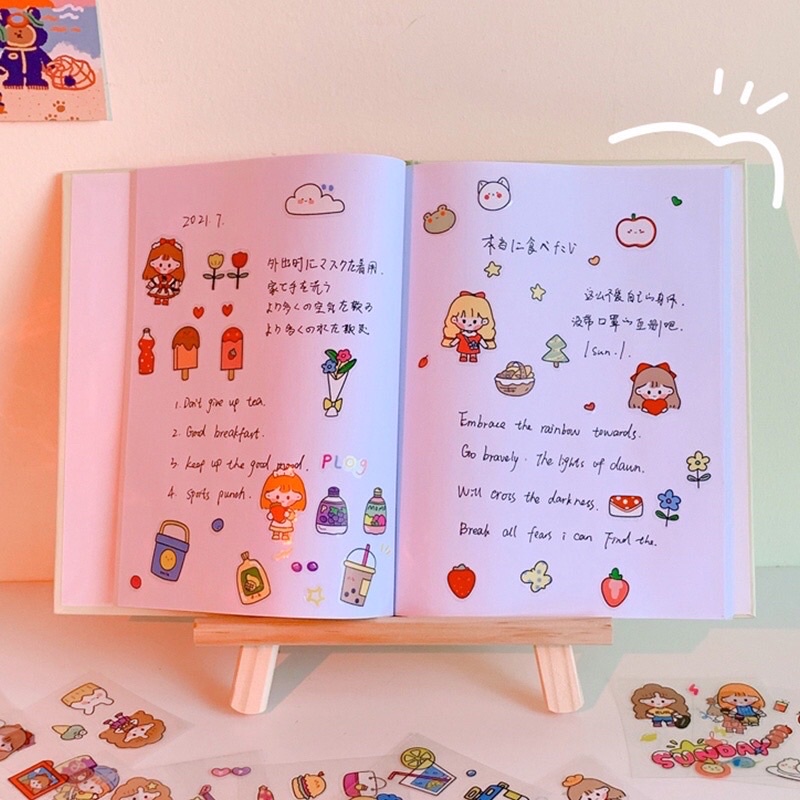 2021.7.
外出时にマスクを着用.
家で手を洗う
より多くの空気を飲る
より多くの水を飲む
1. Don't give up tea.
2. Good breakfast.
3. keep up the good mood.
PLOg
4. sports punch.
本当に食べたい
这么不爱自己的身体.
没带口罩的
吧.
/sun./
Embrace the rainbow towards.
Go bravely. The lights of dawn.
Will cross the darkness.
Break all fears i can Find the.
SUNDAY